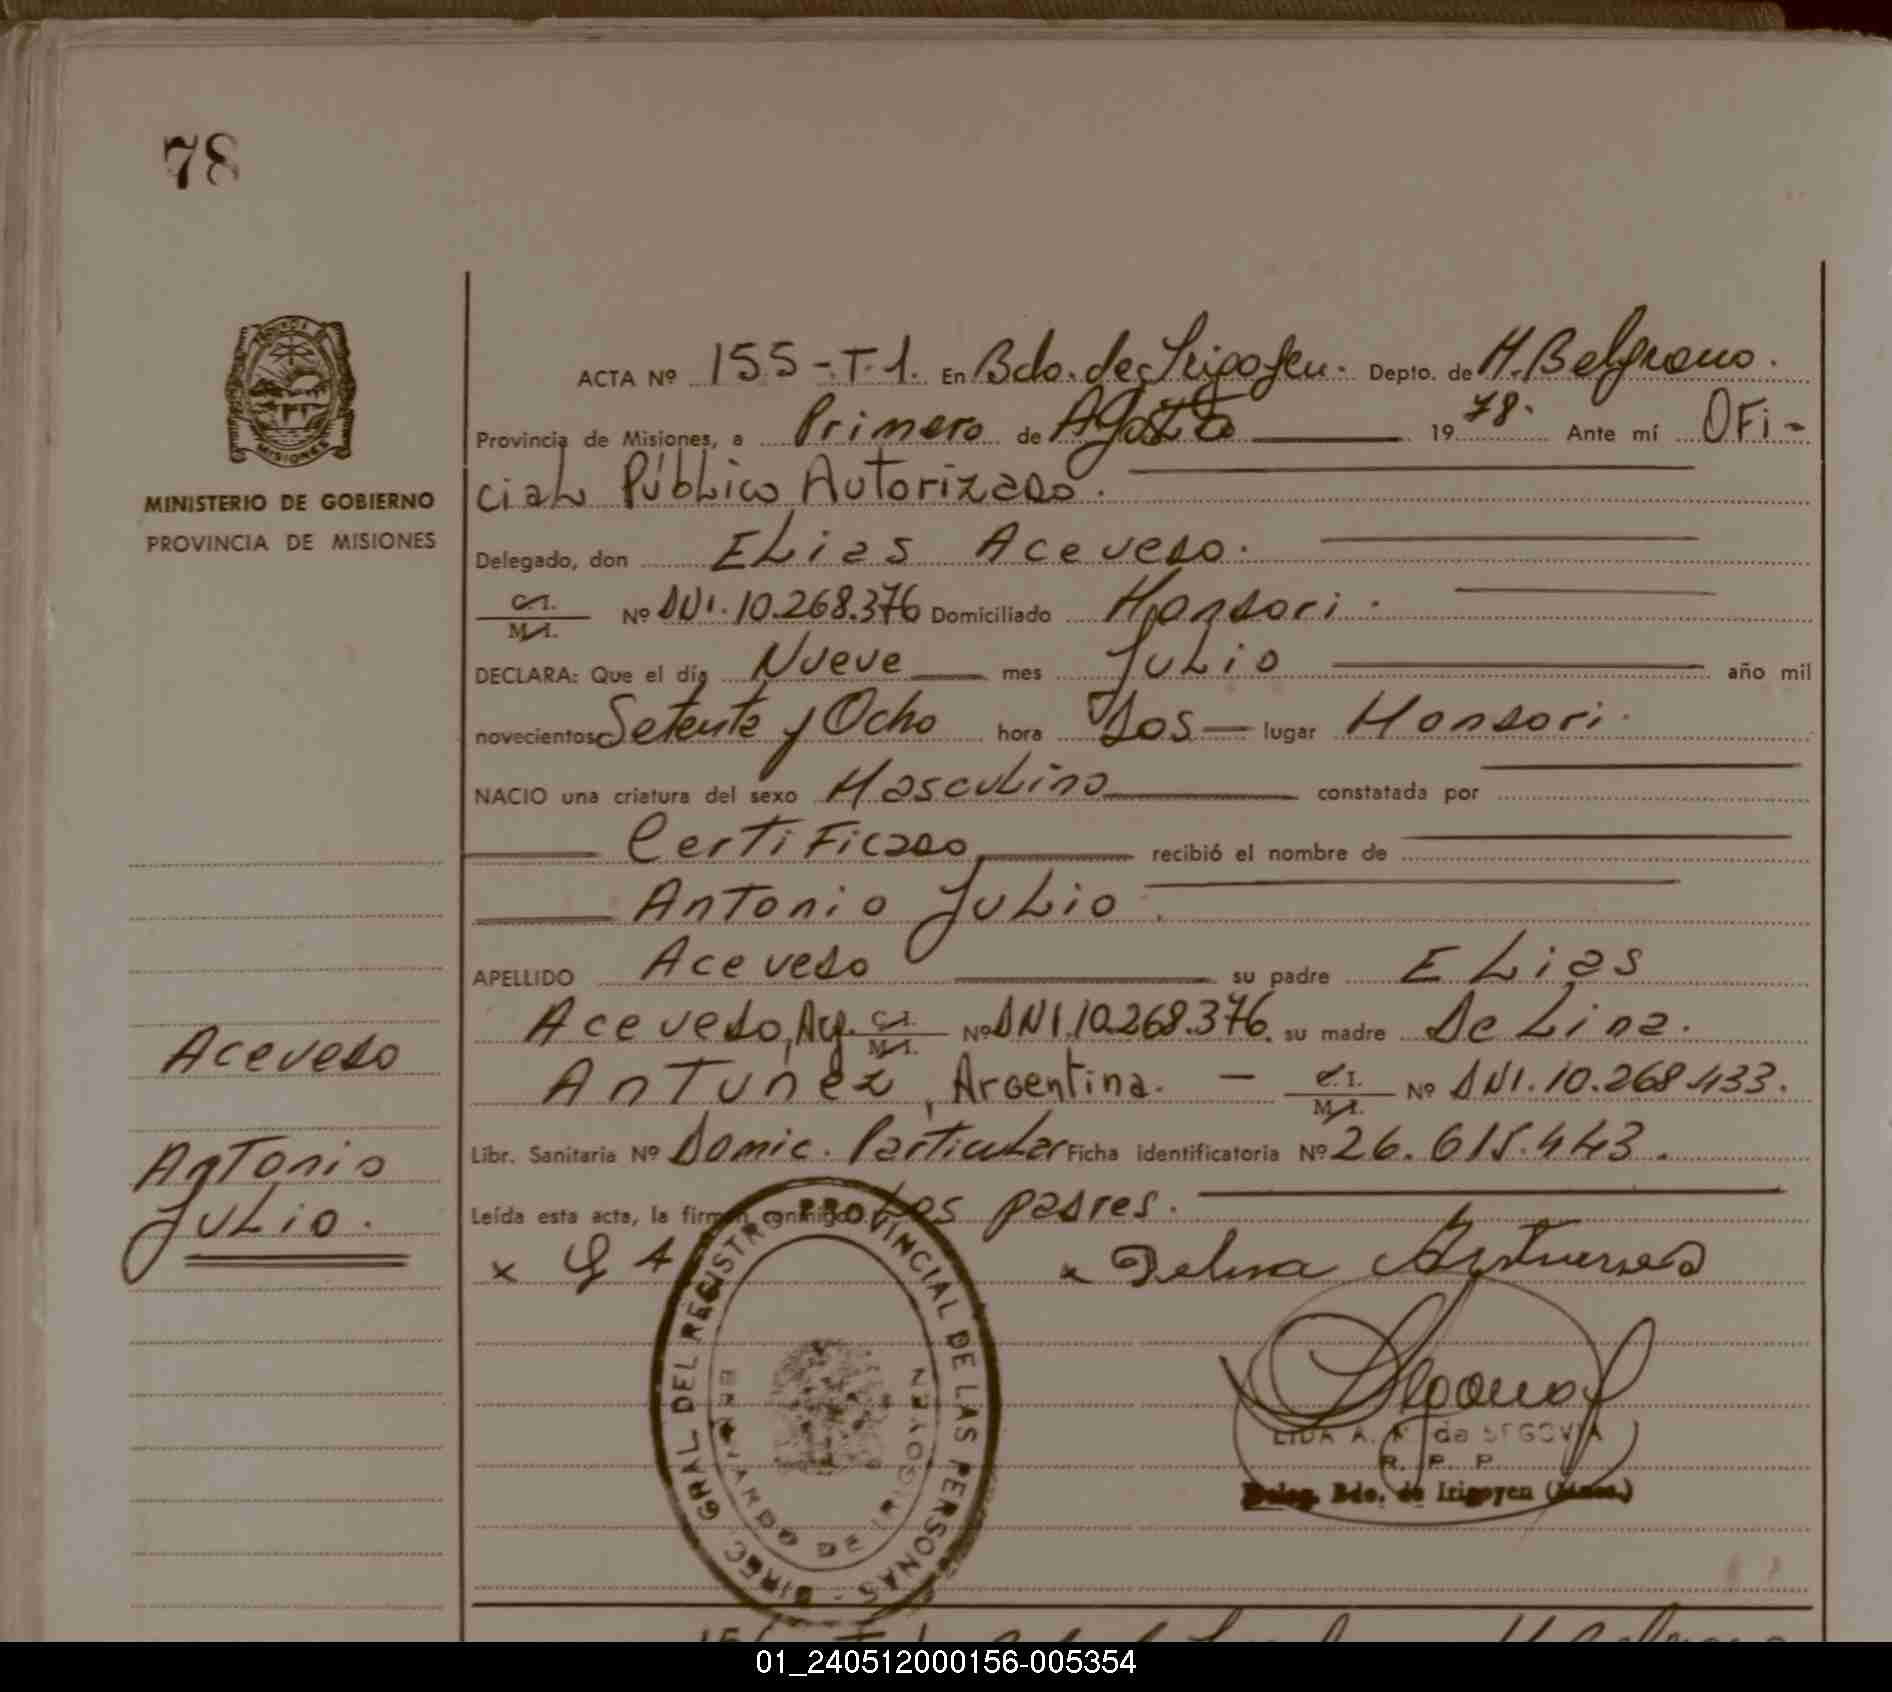 78
MINISTERIO DE GOBIERNO
PROVINCIA DE MISIONES
ACTA Nº 155-T.1. En Bdo. de Irigoyen. Depto. de M. Belgrano.
Provincia de Misiones, a Primero de Agosto 19 78. Ante mí OFi-
cial Público Autorizado.
Delegado, don Elias Acevedo.
C.I. M.I. Nº DNI. 10.268.376 Domiciliado Mondori.
DECLARA: Que el día Nueve mes Julio año mil
novecientos Setenta y Ocho hora Dos lugar Mondori.
NACIO una criatura del sexo Masculino constatada por
Certificado recibió el nombre de
Antonio Julio.
APELLIDO Acevedo su padre Elias
Acevedo, Arg. C.I. M.I. Nº DNI.10.268.376. su madre Delina.
Antunez, Argentina. - C.I. M.I. Nº DNI.10.268.433.
Libr. Sanitaria Nº Domic. Particular Ficha identificatoria Nº 26.615.443.
Leída esta acta, la firman conmigo Los padres.
Acevedo
Antonio
Julio.
x x Delina Antunes
DIREC. GRAL DEL REGISTRO PROVINCIAL DE LAS PERSONAS -
BERNARDO DE IRIGOYEN
LIDA A. de SEGOVIA
R. P. P.
Deleg. Bdo. de Irigoyen (Mnes.)
01_240512000156-005354